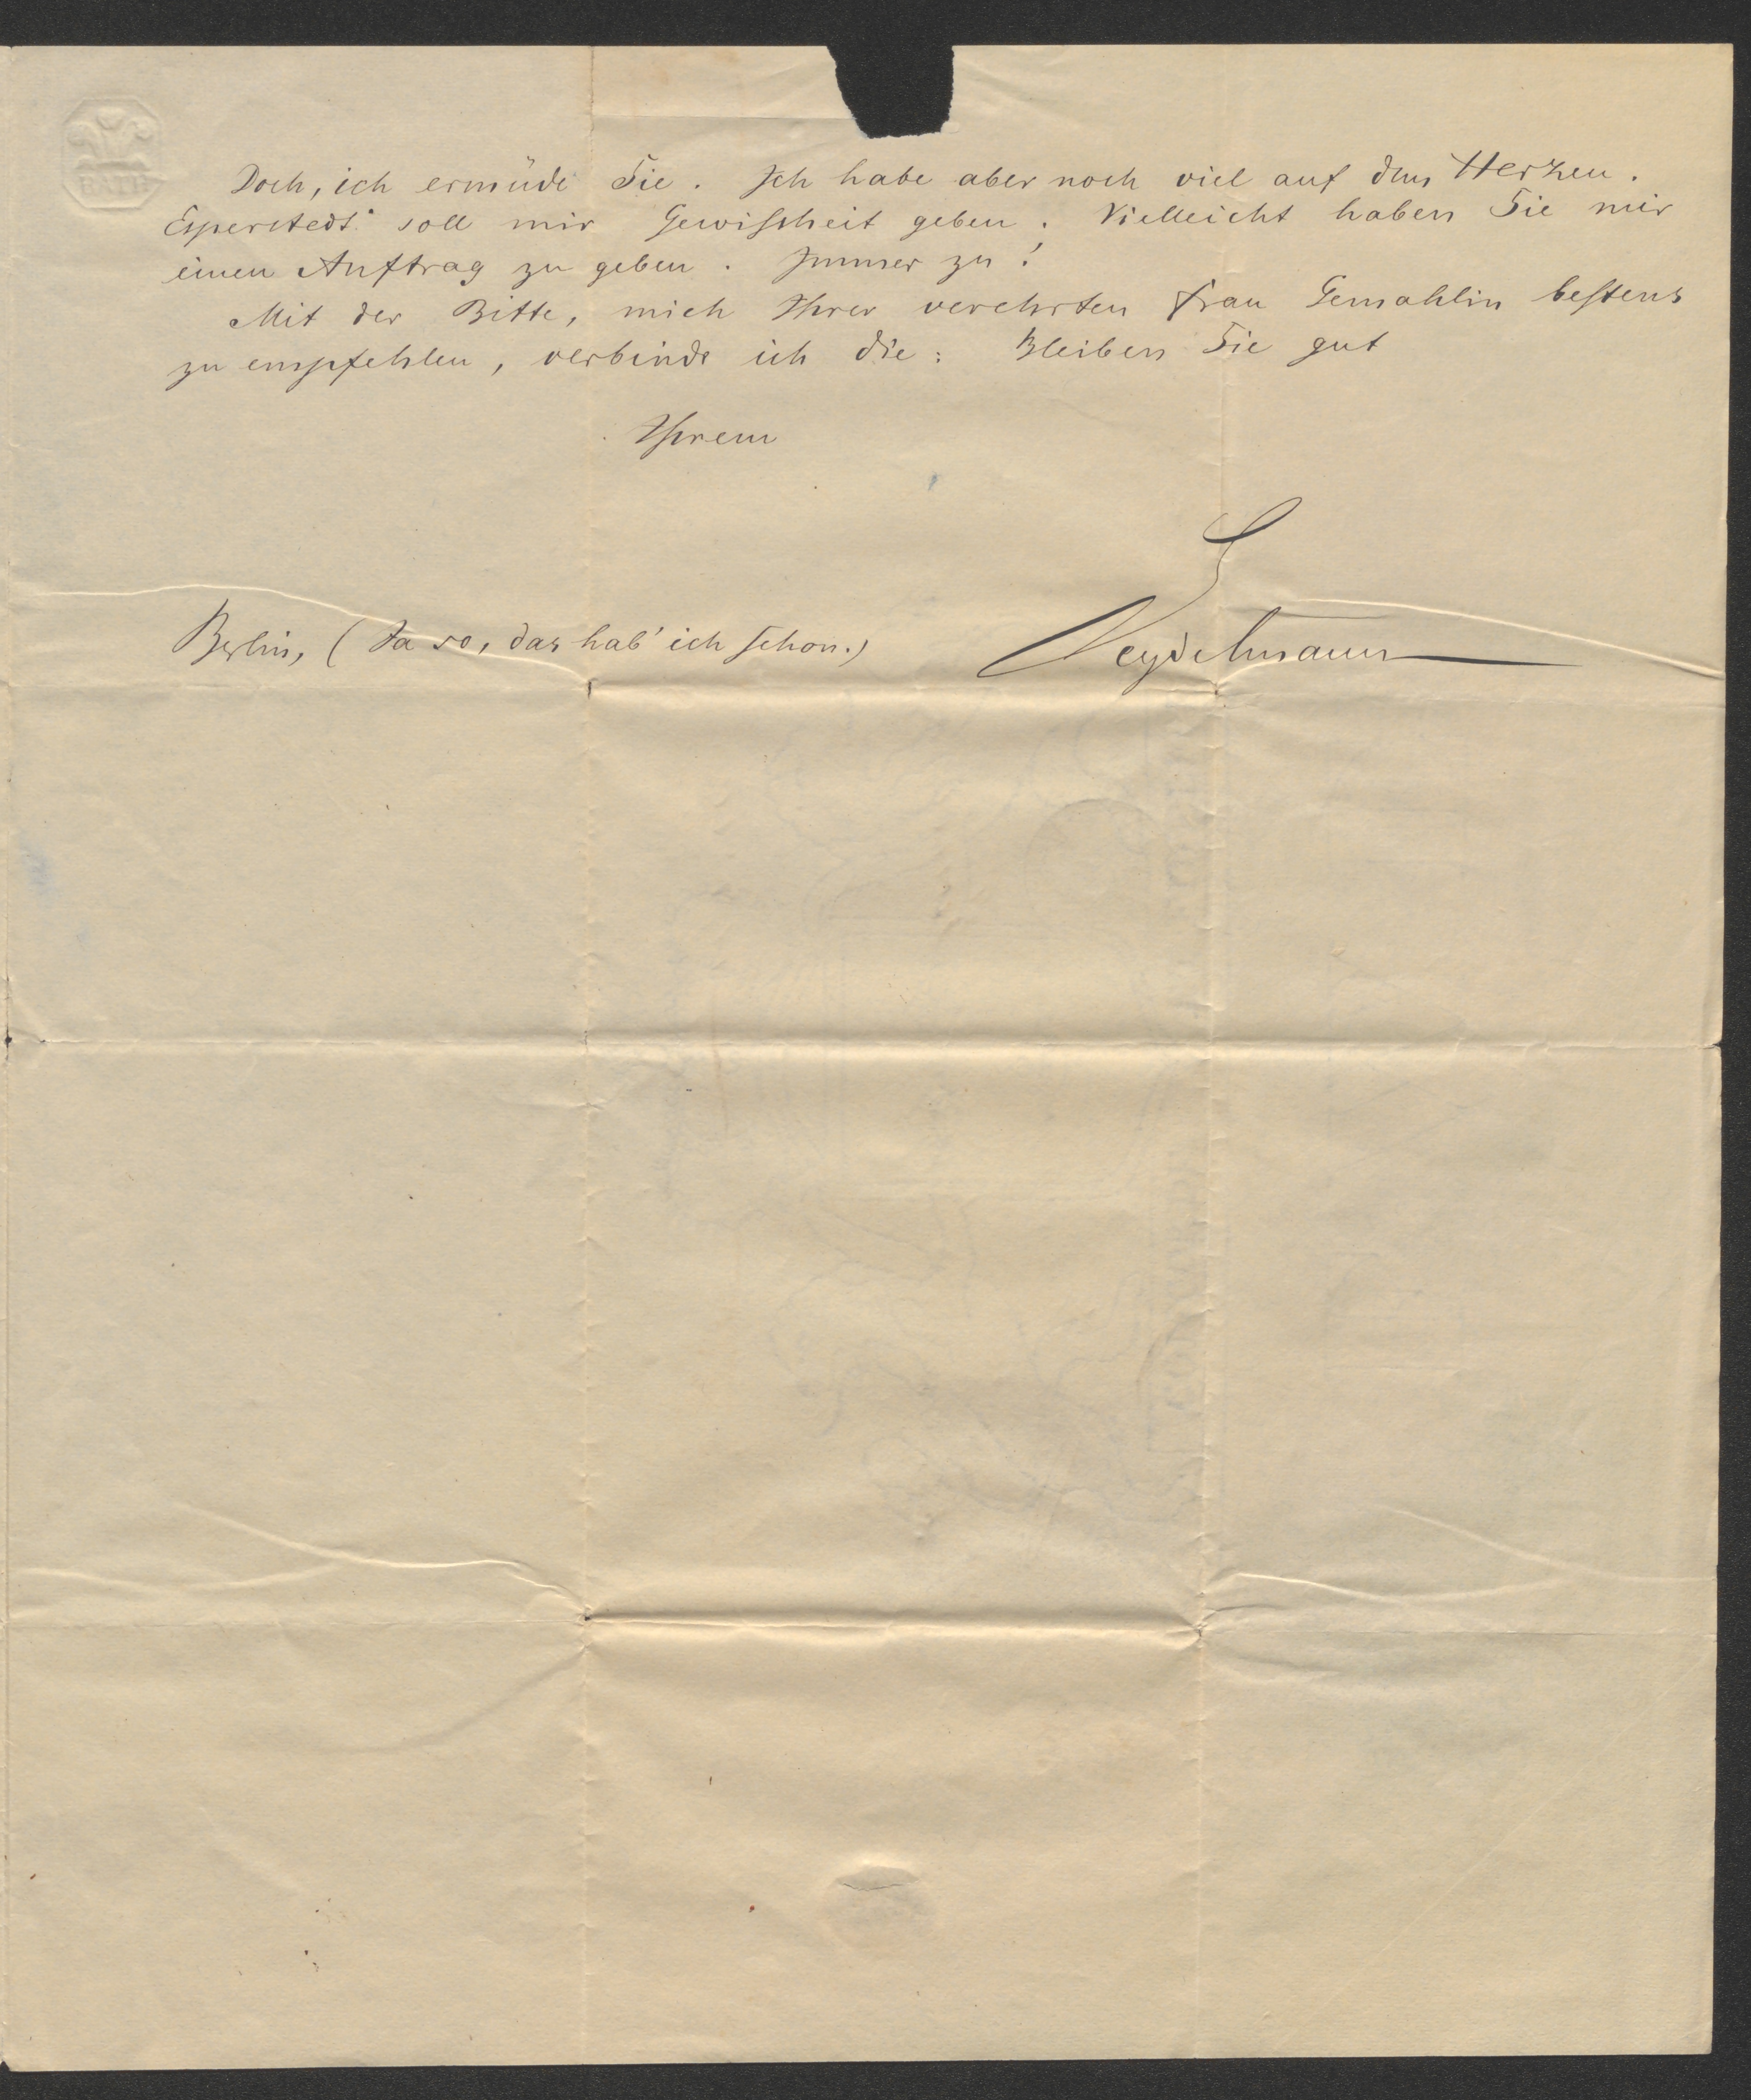 BATH
Doch, ich ermüde Sie. Ich habe aber noch viel auf dem Herzen.
Esperstedt soll mir Gewißheit geben. Vielleicht haben Sie mir
einen Auftrag zu geben. Immer zu!
Mit der Bitte, mich Ihrer verehrten Frau Gemahlin bestens
zu empfehlen, verbinde ich die: Bleiben Sie gut
Ihrem
Seydelmann
Berlin, (Ja so, das hab' ich schon.)